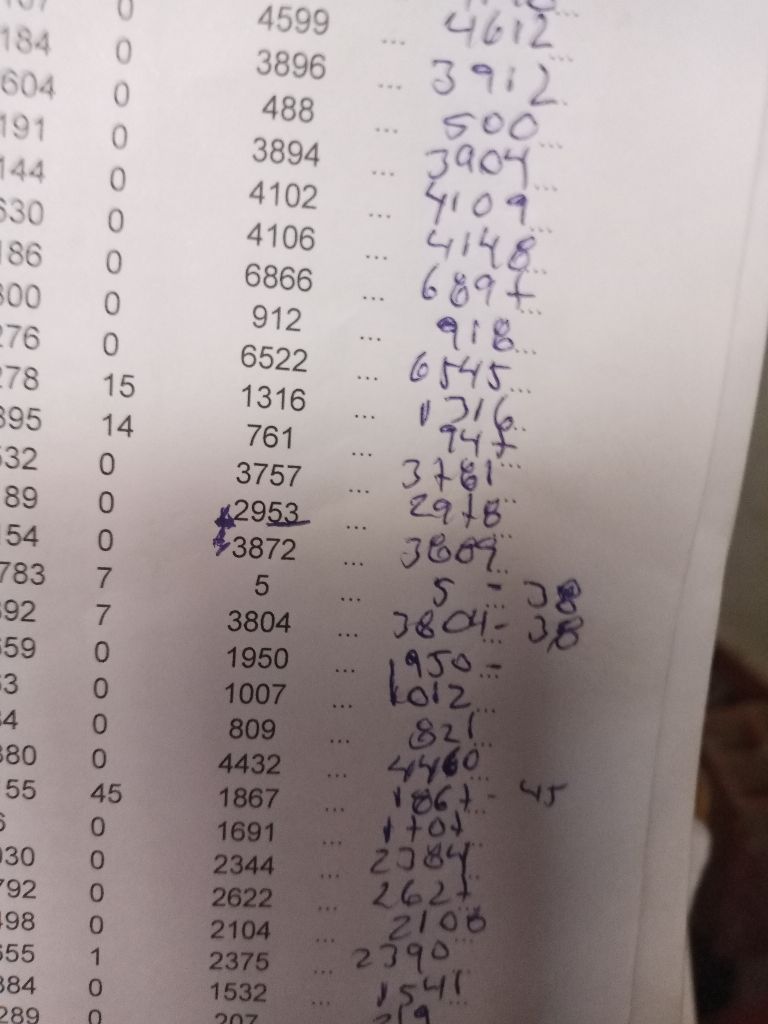 184 0 4599 ... 4612
604 0 3896 ... 3912
191 0 488 ... 500
144 0 3894 ... 3904
630 0 4102 ... 4109
186 0 4106 ... 4148
300 0 6866 ... 6897
276 0 912 ... 918
278 0 6522 ... 6545
395 15 1316 ... 1316
532 14 761 ... 947
189 0 3757 ... 3781
154 0 2953 ... 2978
783 0 3872 ... 3889
392 7 5 ... 5 - 38
659 7 3804 ... 3804 - 38
63 0 1950 ... 1950 -
34 0 1007 ... 1012
380 0 809 ... 821
155 0 4432 ... 4460
6 45 1867 ... 1867 - 45
030 0 1691 ... 1707
792 0 2344 ... 2384
498 0 2622 ... 2627
655 0 2104 ... 2108
384 1 2375 ... 2390
289 0 1532 ... 1541
0 207 219